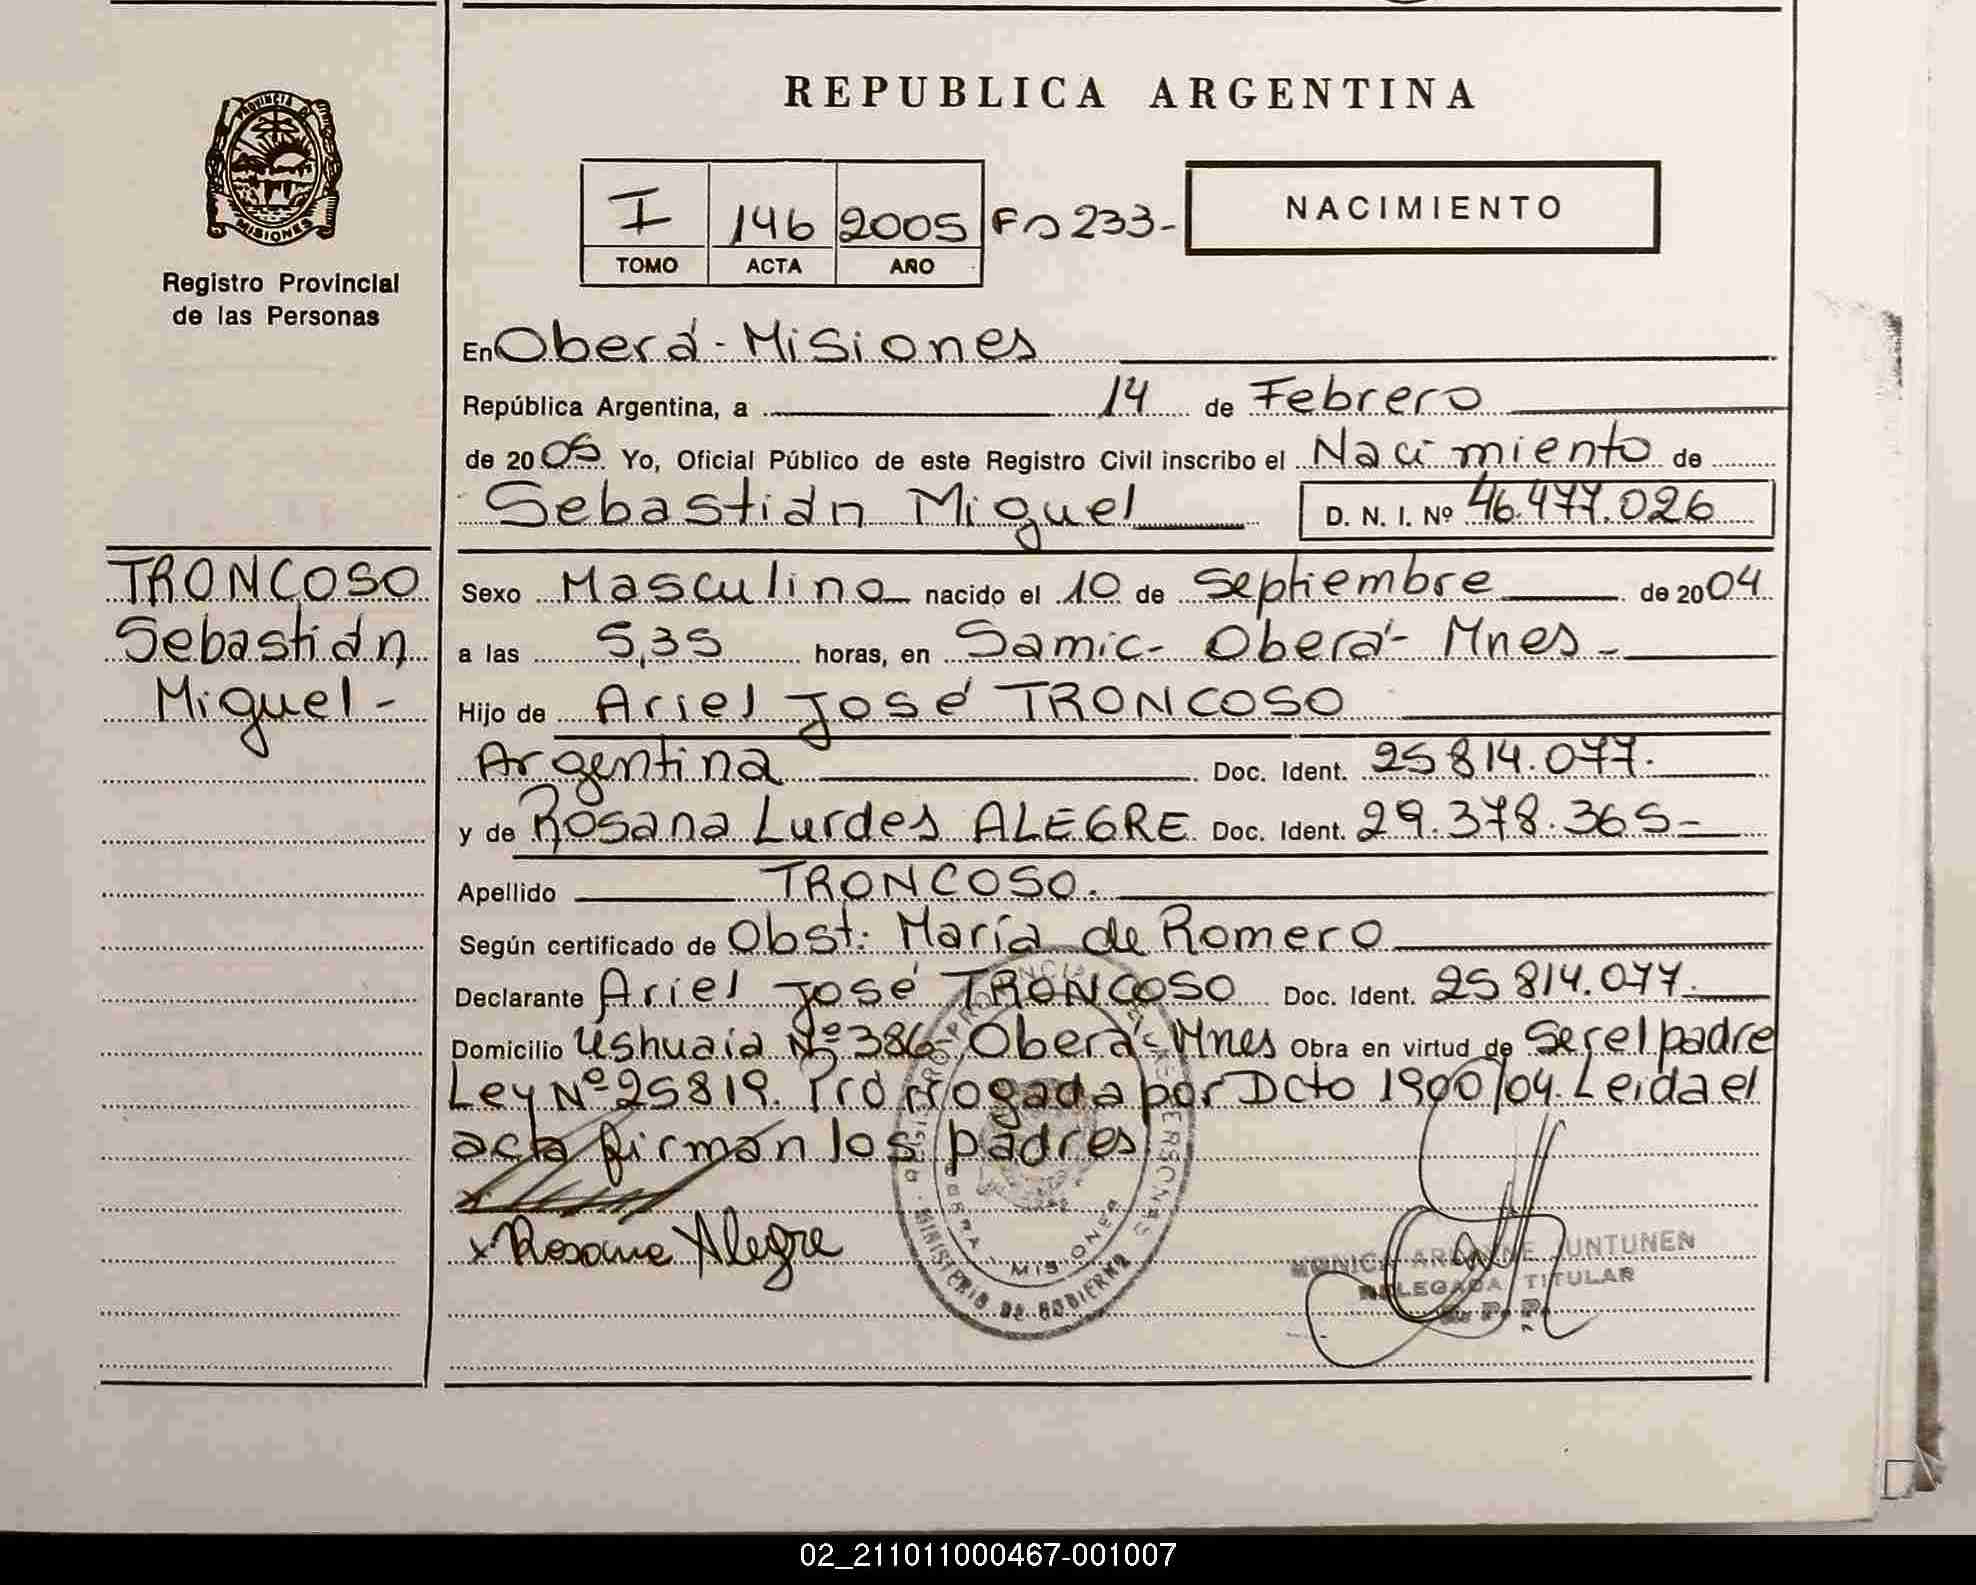 REPUBLICA ARGENTINA
PROVINCIA DE
MISIONES
Registro Provincial
de las Personas
I 146 2005 Fo 233-
TOMO ACTA AÑO
NACIMIENTO
En Oberá - Misiones
República Argentina, a 14 de Febrero
de 2005 Yo, Oficial Público de este Registro Civil inscribo el Nacimiento de
Sebastián Miguel D. N. I. Nº 46.477.026
TRONCOSO
Sebastián
Miguel -
Sexo Masculino nacido el 10 de Septiembre de 2004
a las 5,35 horas, en Samic- Oberá- Mnes -
Hijo de Ariel José TRONCOSO
Argentina Doc. Ident. 25814.077.
y de Rosana Lurdes ALEGRE Doc. Ident. 29.378.365-
Apellido TRONCOSO.
Según certificado de Obst. María de Romero
Declarante Ariel José TRONCOSO Doc. Ident. 25814.077.
Domicilio Ushuaia Nº 386- Oberá- Mnes Obra en virtud de Ser el padre
Ley Nº 25819. Prorrogada por Dcto 1900/04. Leida el
acta firman los padres
x Rosana Alegre
MINISTERIO DE GOBIERNO
MISIONES
MONICA JUNTUNEN
DELEGADA TITULAR
R. P. P.
02_211011000467-001007